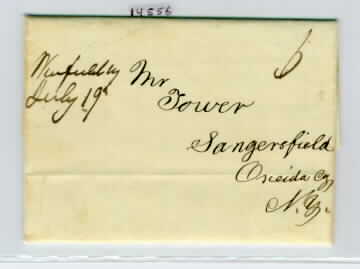 14556
Winfield NY
July 19th
6
Mr
Tower
Sangersfield
Oneida Co,
N.Y.